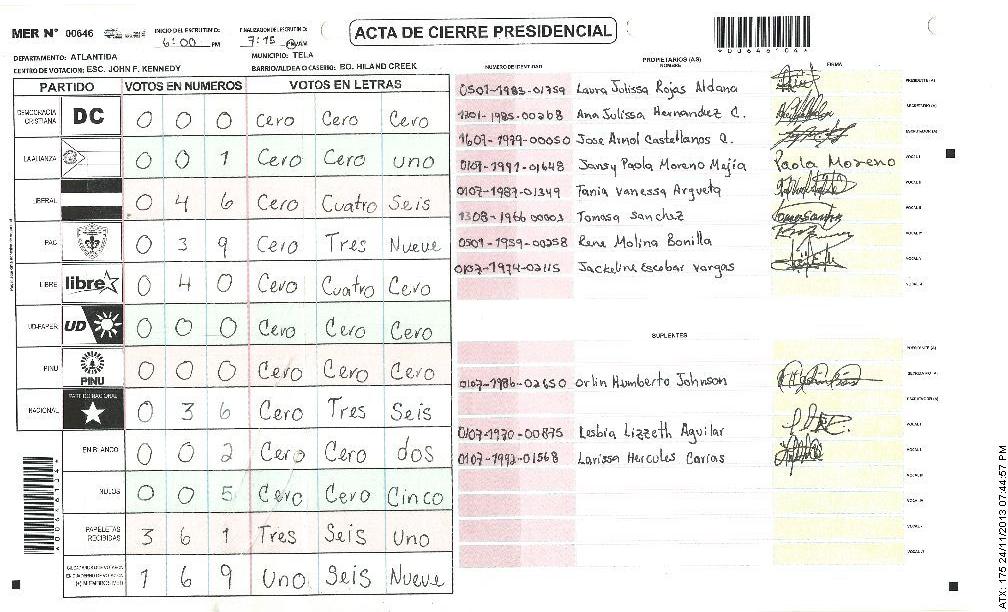 MER N° 00646
INICIO DEL ESCRUTINIO: 6:00 PM
FINALIZACION DE ESCRUTINIO: 7:15 PM/AM
ACTA DE CIERRE PRESIDENCIAL
DEPARTAMENTO: ATLANTIDA
MUNICIPIO: TELA
CENTRO DE VOTACION: ESC. JOHN F. KENNEDY
BARRIO/ALDEA O CASERIO: BO. HILAND CREEK
PARTIDO VOTOS EN NUMEROS VOTOS EN LETRAS
DEMOCRACIA CRISTIANA DC 0 0 0 Cero Cero Cero
LA ALIANZA 0 0 1 Cero Cero uno
LIBERAL 0 4 6 Cero Cuatro Seis
PAC 0 3 9 Cero Tres Nueve
LIBRE libre 0 4 0 Cero Cuatro Cero
UD-FAPER UD 0 0 0 Cero Cero Cero
PINU PINU 0 0 0 Cero Cero Cero
NACIONAL PARTIDO NACIONAL 0 3 6 Cero Tres Seis
EN BLANCO 0 0 2 Cero Cero dos
NULOS 0 0 5 Cero Cero Cinco
PAPELETAS RECIBIDAS 3 6 1 Tres Seis Uno
1 6 9 Uno Seis Nueve
NUMERO DE IDENTIDAD PROPIETARIOS (AS) NOMBRE FIRMA
0501-1983-01759 Laura Julissa Rojas Aldana PRESIDENTE (A)
1201-1985-00268 Ana Julissa Hernandez C. SECRETARIO (A)
1607-1979-00050 Jose Arnol Castellanos Q. ESCRUTADOR (A)
0109-1991-01648 Jansy Paola Moreno Mejía Paola Moreno VOCAL I
0107-1987-01349 Tania Vanessa Argueta VOCAL II
1308-1966 00003 Tomasa Sanchez VOCAL III
0501-1959-00258 Rene Molina Bonilla VOCAL IV
0107-1974-02115 Jackeline Escobar Vargas VOCAL V
SUPLENTES
PRESIDENTE (A)
0107-1986-02650 Orlin Humberto Johnson
ESCRUTADOR (A)
0107-1970-00875 Lesbia Lizzeth Aguilar VOCAL I
0107-1992-01568 Larissa Hercules Carias
ATX: 175 24/11/2013 07:44:57 PM